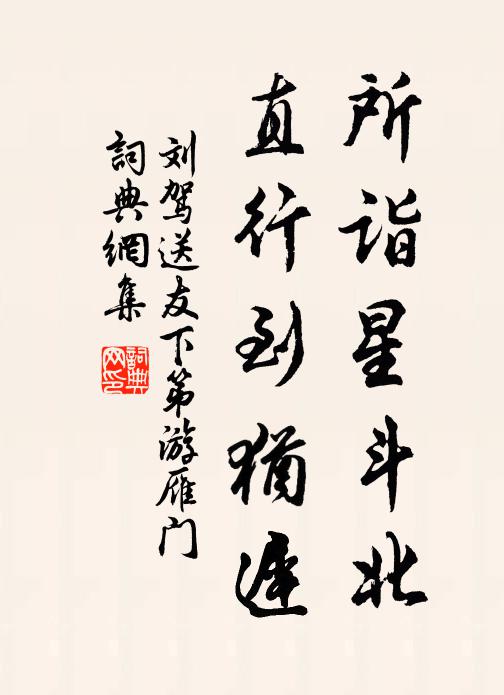 所詣星斗北
直行到猶遲
刘駕送友下第游雁门
詞典網集
詞典网印